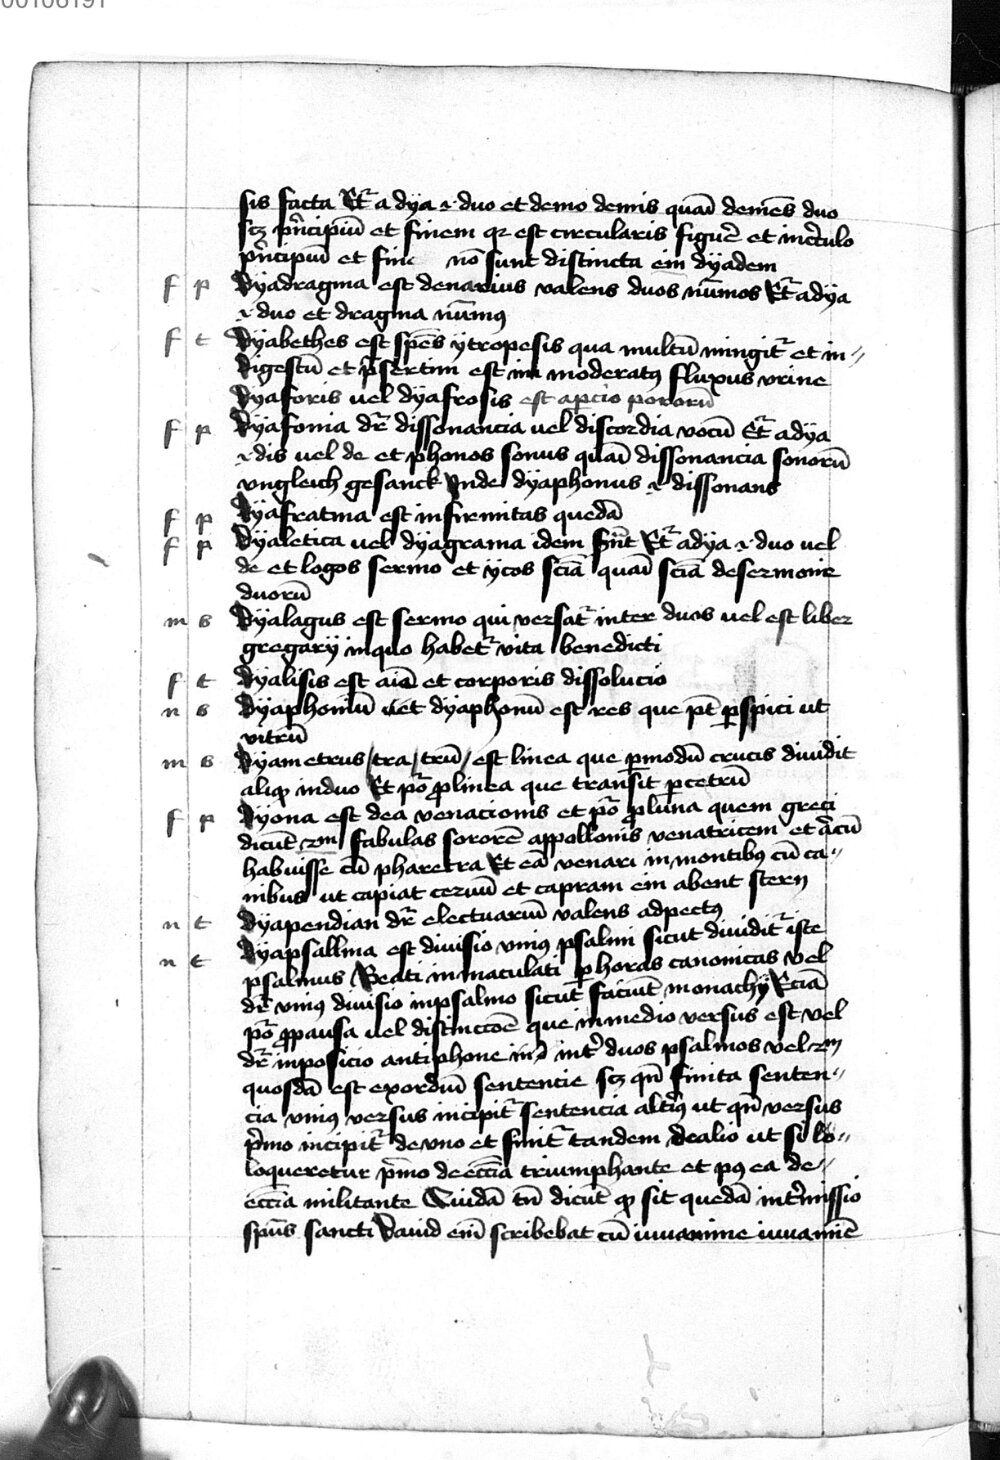 00106191
sis facta Et̃ a dya .i. duo et demo demis quasi demēs duo
scȝ pñcipiū et finem qr est circularis figurē et in circulo
pñcipiū et fine nō sunt distincta em̄ dyadem
f p Dyadragma est denarius valens duos nūmos Et̃ a dya
.i. duo et dragma nūmꝰ
f t Dyabethes est spēs ytropesis qua multū mingit̃ et in-
digestū et p̄sertim est im moderatꝰ fluxus vrine
Dyaforis uel dyafrosis est apcio pororū
f p Dyafonia dr̄ dissonancia uel discordia vocū Et̃ a dya
.i. dis uel de et phonos sonus quasi dissonancia sonorū
vngleich gesanck Vnde dyaphonus .i. dissonans
f p Dyafratma est infirmitas quedā
f p Dyaletica uel dyagrama idem sūnt Et̃ a dya .i. duo uel
de et logos sermo et ycos sciā quasi sciā de sermone
duorū
m s Dyalagus est sermo qui versat̃ inter duos uel est liber
gregarij in quo habet̃ vita benedicti
f t Dyalisis est aiē et corporis dissolucio
n s Dyaphoniū uel dyaphonū est res que pt̄ ꝑspici ut
vitrū
m s Dyametrus /tra /trū/ est linea que ꝑ modū crucis diuidit
aliqͥ in duo Et pō ꝓ linea que transit ꝑ cētrū
f p Dyona est dea venacionis et pō ꝓ luna quem greci
dicūt 2m fabulas sororē appollonis venatricem et arcū
habuisse cū pharetra Et eā venari in montibꝰ cū ca-
nibus ut capiat ceruū et capram em̄ abent stern
n t Dyapendian dr̄ electuariū valens ad pectꝰ
n t Dyapsallma est diuisio vniꝰ psalmi sicut diuidit̃ iste
psalmus Beati inmaculati ꝑ horas canonicas vel
dr̄ vniꝰ diuisio in psalmo sicut faciūt monachy Eciā
pō ꝓ pausa uel distinctōe que in medio versus est vel
dr̄ inposicio antiphone int̃ duos psalmos vel 2m
quosdā est exordiū sentencie scȝ qn̄ finita senten-
cia vniꝰ versus incipit̃ sentencia altīꝰ ut qn̄ versus
p̄mo incipit̃ de vno et finit̃ tandem de alio ut si lo-
loqueretur p̄mo de ecc̄ia triumphante et pꝰ ea de
ecc̄ia militante Quidā tn̄ dicūt qͥ sit quedā int̃missio
spūs sancti Dauid em̄ scribebat cū iuuamine iuuamīe